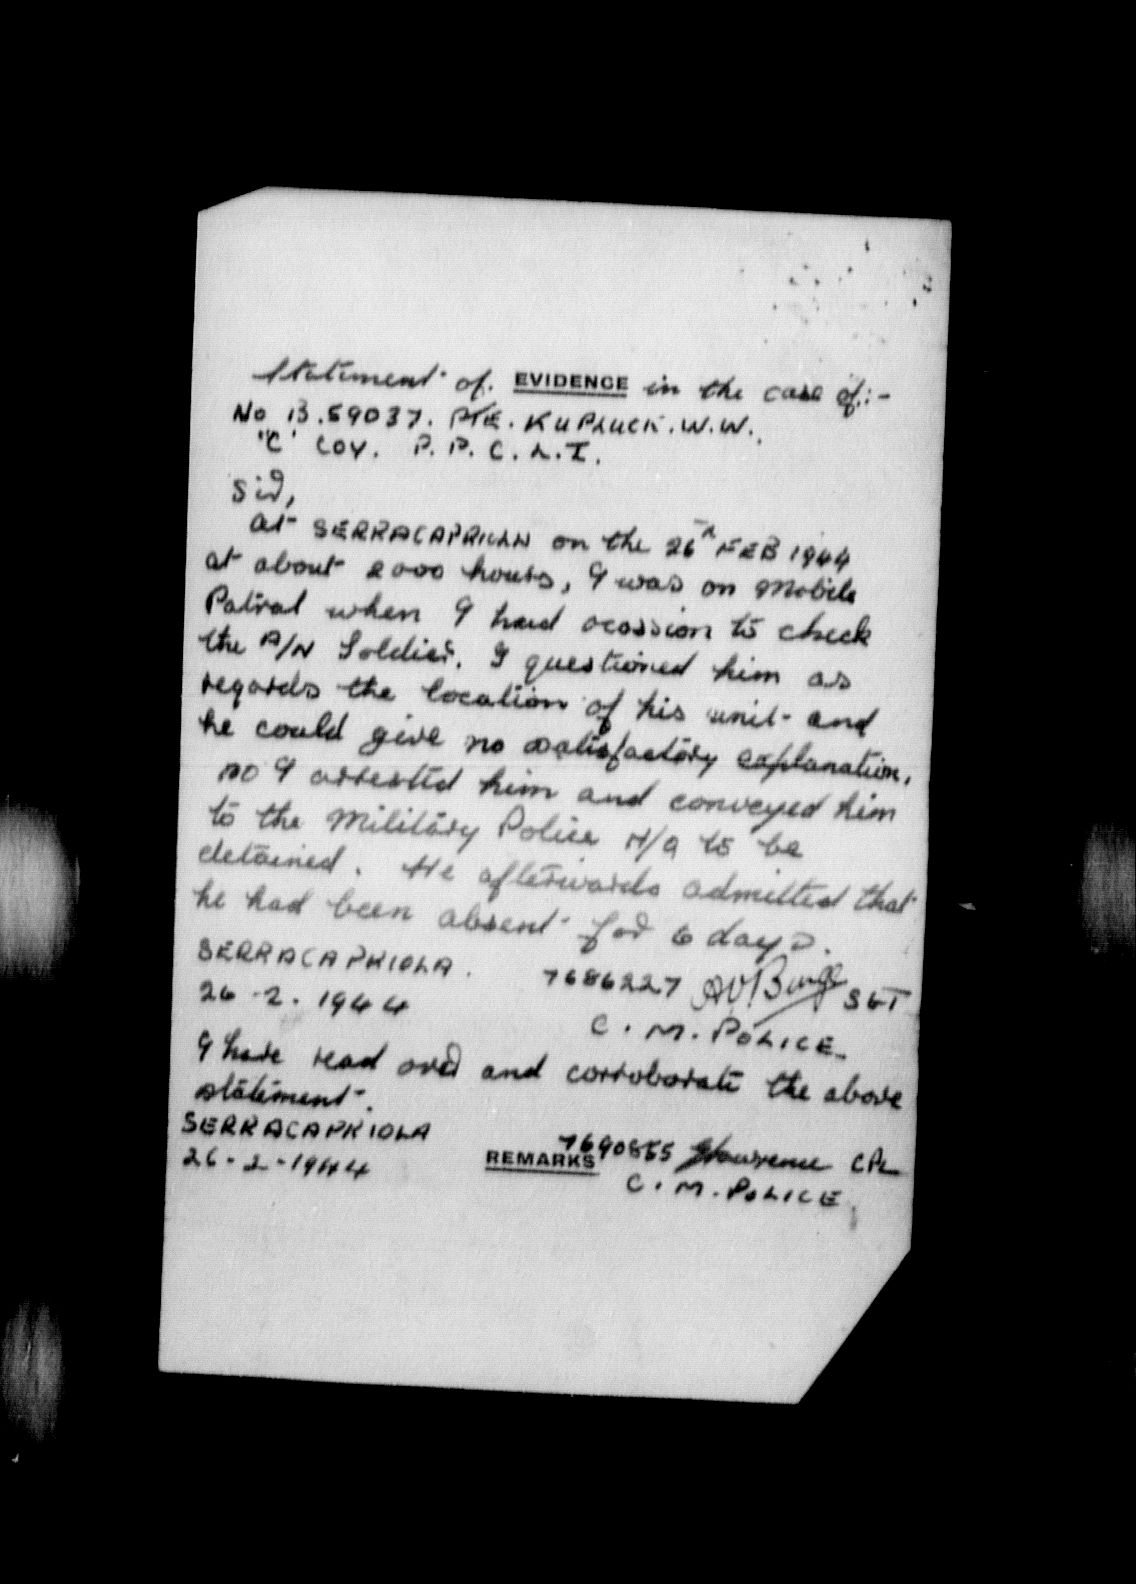 Statement of. EVIDENCE in the case of:-
No B.59037. PTE. KUPLUCK. W.W.,
"C" COY. P.P.C.L.I.
Sir,
at SERRACAPRIOLA on the 26th FEB 1944
at about 2000 hours, I was on Mobile
Patrol when I had ocassion to check
the A/N Soldier. I questioned him as
regards the location of his unit and
he could give no satisfactory explanation,
so I arrested him and conveyed him
to the Military Police H/Q to be
detained. He afterwards admitted that
he had been absent for 6 days.
SERRACAPRIOLA. 7686227 SGT
26-2.1944 C.M.POLICE.
I have read over and corroborate the above
statement.
SERRACAPRIOLA 7690855 Lawrence CPL
26-2-1944 REMARKS C.M.POLICE.